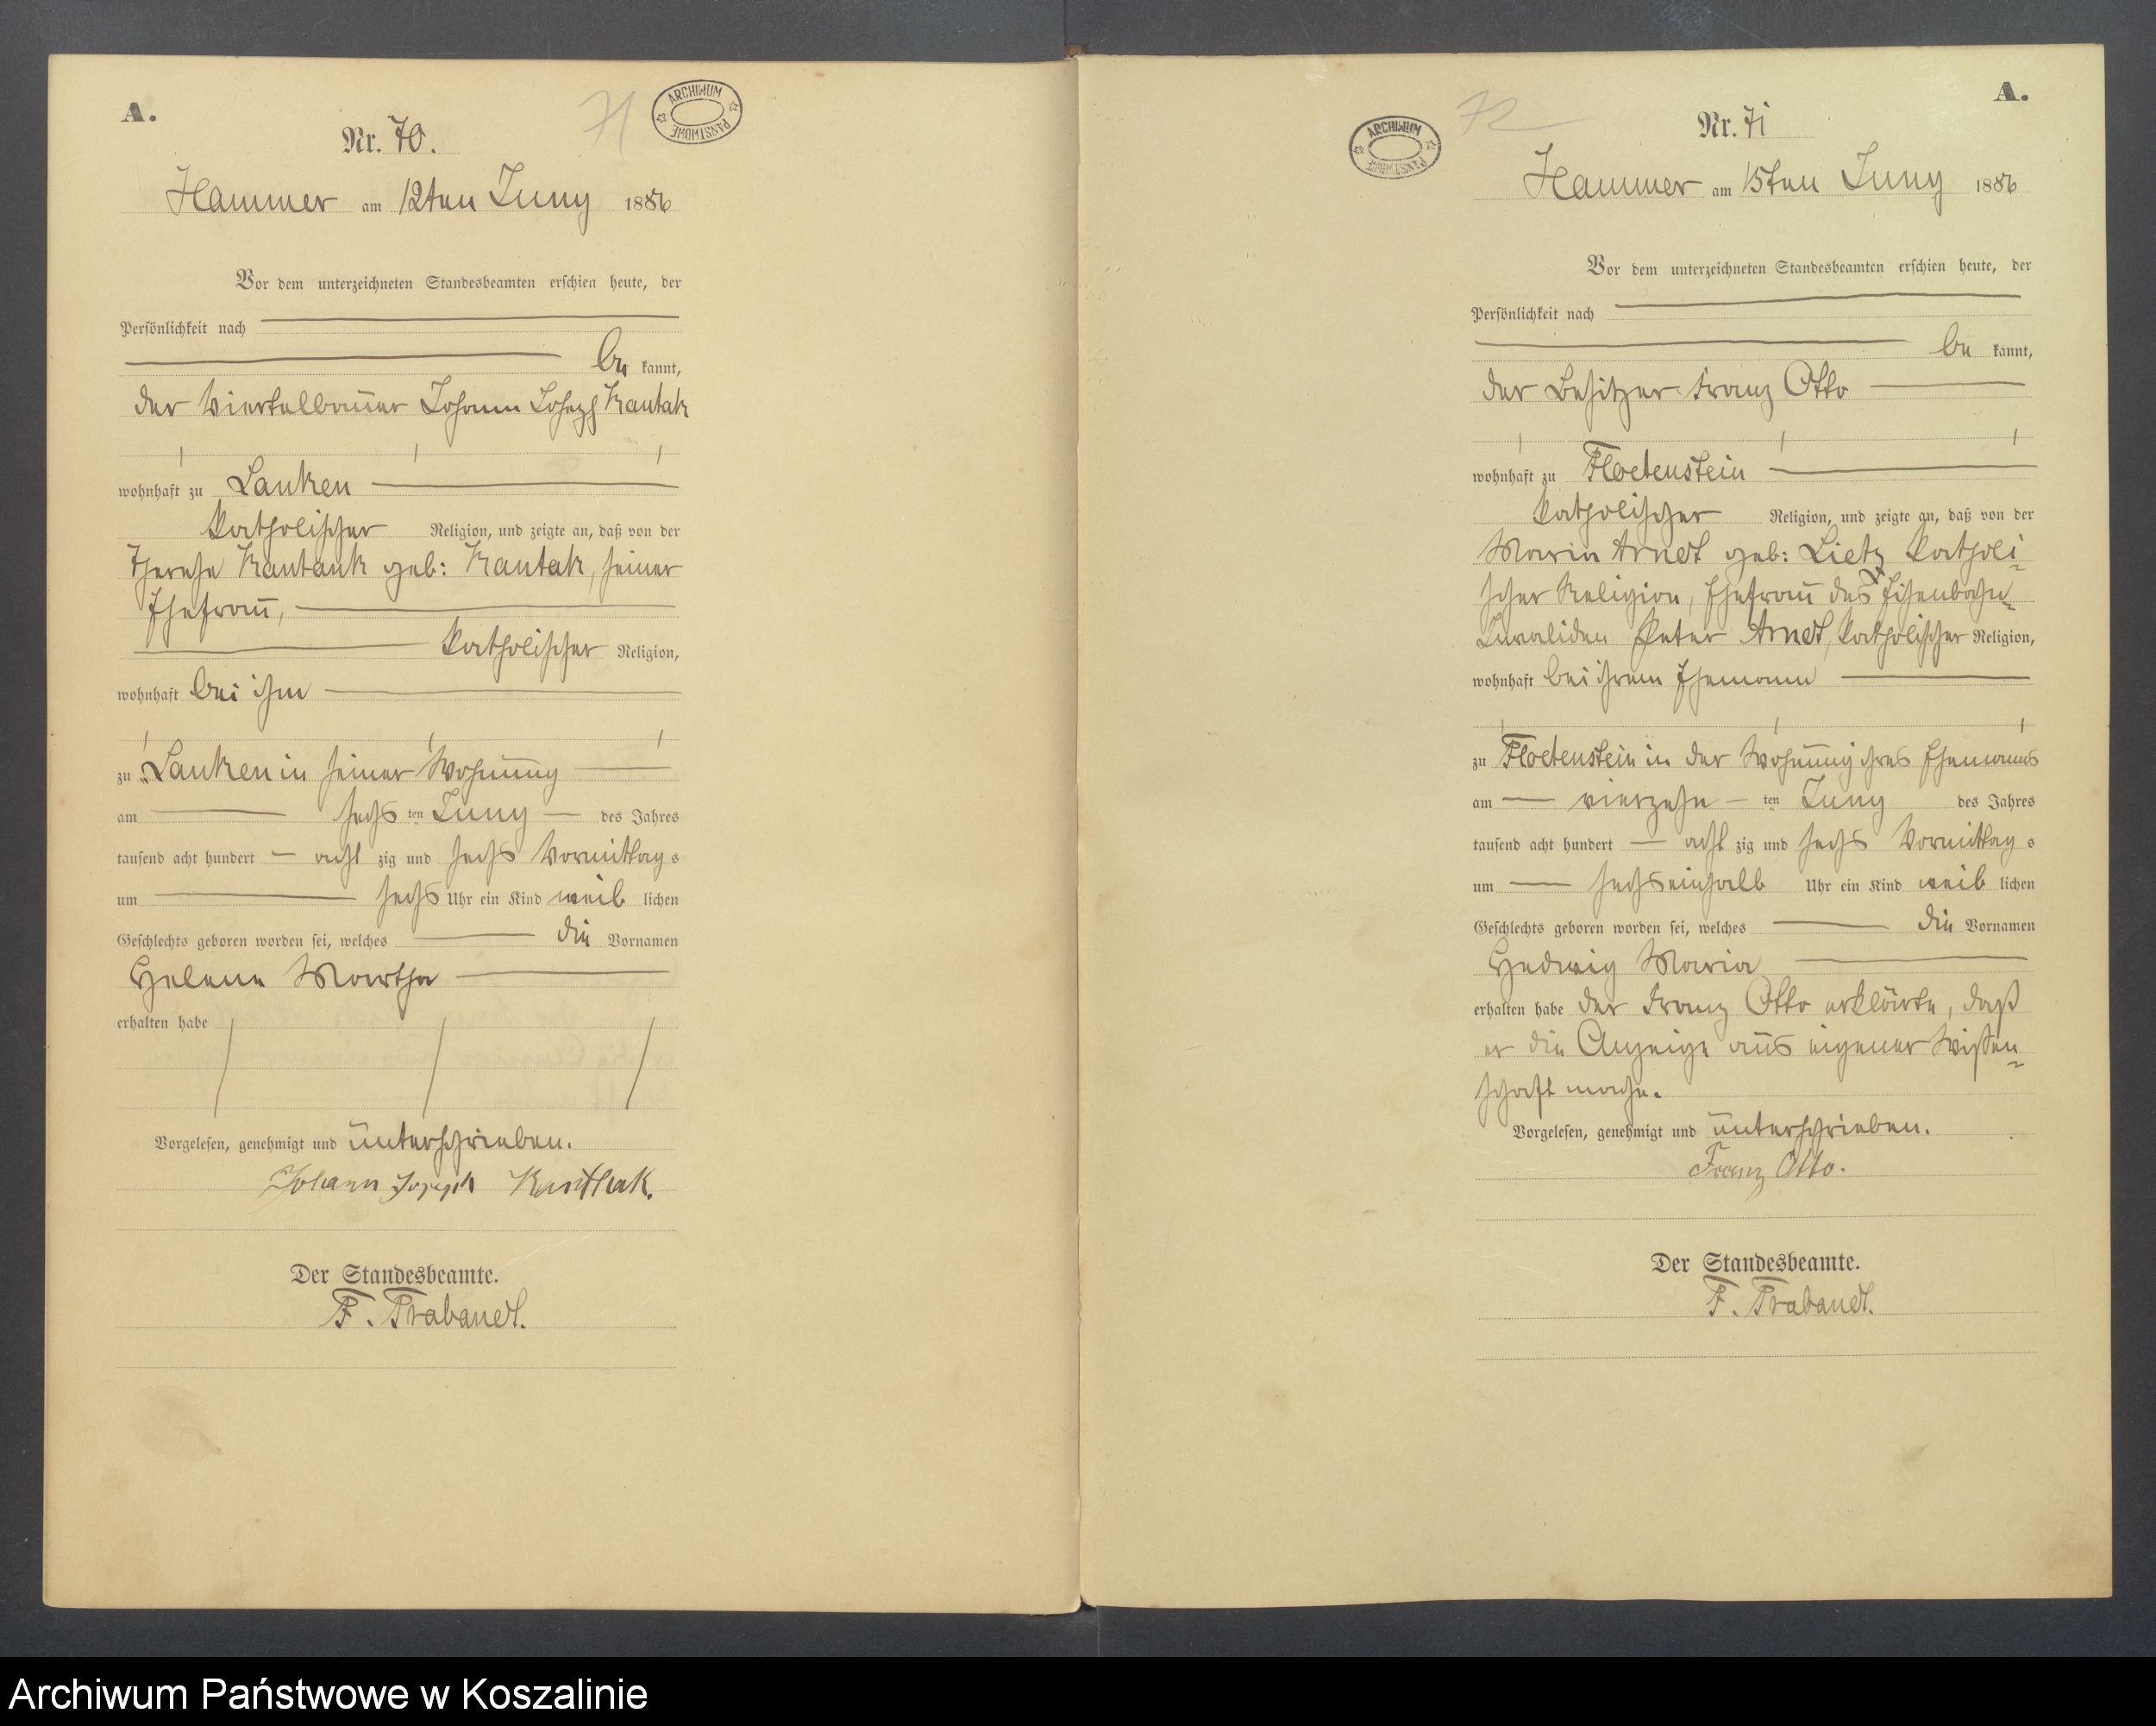 A.
71
ARCHIWUM PAŃSTWOWE
Nr. 70.
Hammer am 12ten Juny 1886
Vor dem unterzeichneten Standesbeamten erschien heute, der
Persönlichkeit nach
be kannt,
der Viertelbauer Johann Joseph Kantak
wohnhaft zu Lanken
katholischer Religion, und zeigte an, daß von der
Therese Kantank geb: Kantak, seiner
Ehefrau,
katholischer Religion,
wohnhaft bei ihm
zu Lanken in seiner Wohnung
am sechs ten Juny des Jahres
tausend acht hundert acht zig und sechs Vormittag s
um sechs Uhr ein Kind weib lichen
Geschlechts geboren worden sei, welches die Vornamen
Helene Martha
erhalten habe
Vorgelesen, genehmigt und unterschrieben.
Johann Joseph Kanthak.
Der Standesbeamte.
F. Trabandt.
A.
72
ARCHIWUM PAŃSTWOWE
Nr. 71
Hammer am 15ten Juny 1886
Vor dem unterzeichneten Standesbeamten erschien heute, der
Persönlichkeit nach
be kannt,
der Besitzer Franz Otto
wohnhaft zu Floetenstein
katholischer Religion, und zeigte an, daß von der
Maria Arndt geb: Lietz katholi-
scher Religion, Ehefrau des Eisenbahn-
Invaliden Peter Arndt, katholischer Religion,
wohnhaft bei ihrem Ehemann
zu Floetenstein in der Wohnung ihres Ehemanns
am vierzehn ten Juny des Jahres
tausend acht hundert acht zig und sechs Vormittag s
um sechseinhalb Uhr ein Kind weib lichen
Geschlechts geboren worden sei, welches die Vornamen
Hedwig Maria
erhalten habe der Franz Otto erklärte, daß
er die Anzeige aus eigener Wissen-
schaft mache.
Vorgelesen, genehmigt und unterschrieben.
Franz Otto.
Der Standesbeamte.
F. Trabandt.
Archiwum Państwowe w Koszalinie